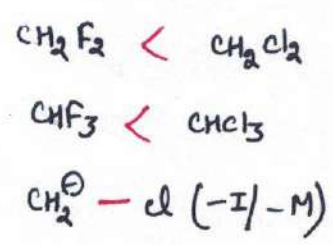 CH₂F₂ < CH₂Cl₂
CHF₃ < CHCl₃
CH₂⊖ — Cl (-I/-M)